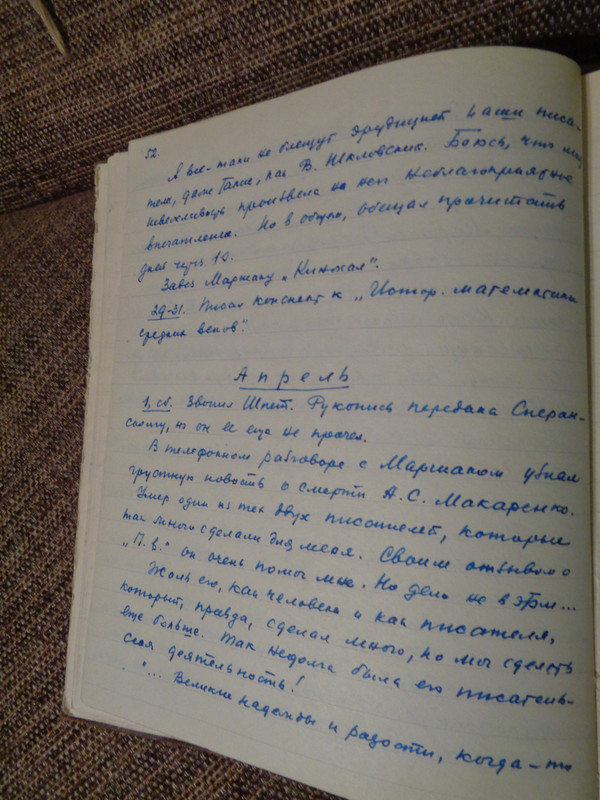 52.
А все-таки не блещут эрудицией наши писа-
тели, даже такие, как В. Шкловский. Боюсь, что моя
невежливость произвела на него неблагоприятное
впечатление. Но в общем, обещал прочитать
дней через 10.
Завез Маршаку „Кинжал“.
29-31. Писал конспект к „Истор. математики
средних веков“.
Апрель
1, сб. Звонил Шпет. Рукопись передана Сперан-
скому, но он ее еще не прочел.
В телефонном разговоре с Маршаком узнал
грустную новость о смерти А.С. Макаренко.
Умер один из тех двух писателей, которые
так много сделали для меня. Своим отзывом о
„П. в.“ он очень помог мне. Но дело не в этом...
Жаль его, как человека и как писателя,
который, правда, сделал много, но мог сделать
еще больше. Так недолга была его писатель-
ская деятельность!
"... Великие надежды и радости, когда-то